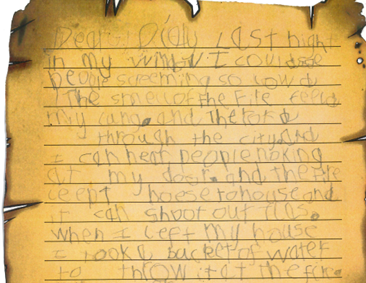 Dear Diory Last night
in my window I could see
people screeming so loud
The smell of the Fire feeld
my lung. and The fire
through the city. And
I can hear people noking
at my door. and the fire
leept house to house and
it can shoot out
when I left my house
I took a bucket of water
to throw it at the fire.